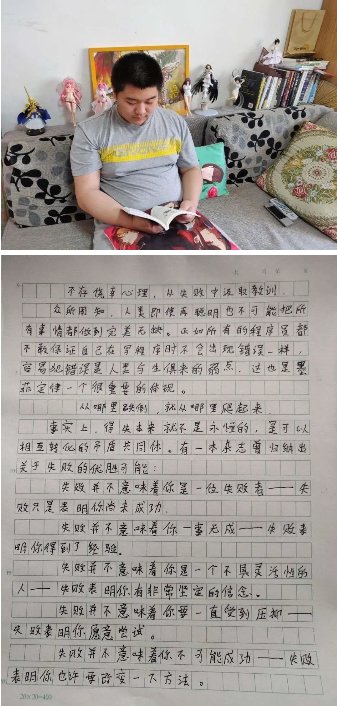 不存侥幸心理，从失败中汲取教训．
众所周知，人类即使再聪明也不可能把所
有事情都做到完美无缺。正如所有的程序员都
不敢保证自己在写程序时不会出现错误一样，
容易犯错误是人类与生俱来的弱点．这也是墨
菲定律一个很重要的体现。
从哪里跌倒，就从哪里爬起来．
事实上，得失本来就不是永恒的，是可以
相互转化的矛盾共同体。有一本杂志曾归纳出
关于失败的优胜可能：
失败并不意味着你是一位失败者——失
败只是表明你尚未成功．
失败并不意味着你一事无成——失败表
明你得到了经验。
失败并不意味着你是一个不具灵活性的
人——失败表明你有非常坚定的信念。
失败并不意味着你要一直受到压抑——
失败表明你愿意尝试。
失败并不意味着你不可能成功——失败
表明你也许要改变一下方法。
20×20=400